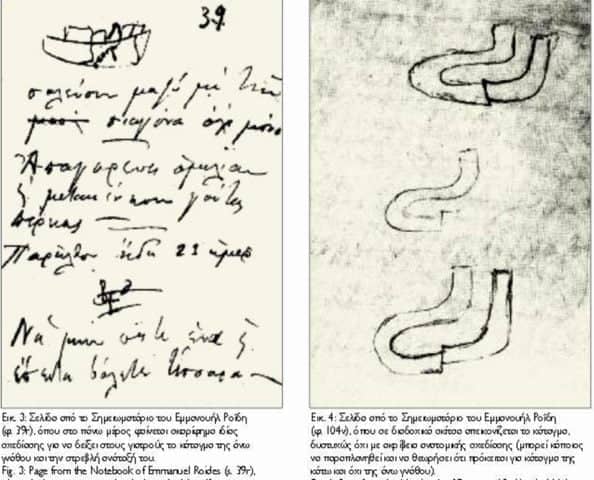 39
σαλεύουν μαζύ μὲ τὴν
σιαγόνα ὄχι μόνο
Ἀπαγορεύει ὁμιλίαν
Παρῆλθον ἤδη 21 ἡμερ
Νὰ μὴν ἕνα ἢ
ἔπειτα βάλετε τέσσαρα
Εικ. 3: Σελίδα από το Σημειωματάριο του Εμμανουήλ Ροΐδη
(φ. 39r), όπου στο πάνω μέρος φαίνεται σκαρίφημα ιδίας
σχεδίασης για να δείξει στους γιατρούς το κάταγμα της άνω
γνάθου και την στρεβλή ανάταξή του.
Fig. 3: Page from the Notebook of Emmanuel Roides (s. 39r),
Εικ. 4: Σελίδα από το Σημειωματάριο του Εμμανουήλ Ροΐδη
(φ. 104v), όπου σε διαδοχικά σκίτσα απεικονίζεται το κάταγμα,
δυστυχώς όχι με ακρίβεια ανατομικής σχεδίασης (μπορεί κάποιος
να παραπλανηθεί και να θεωρήσει ότι πρόκειται για κάταγμα της
κάτω και όχι της άνω γνάθου).